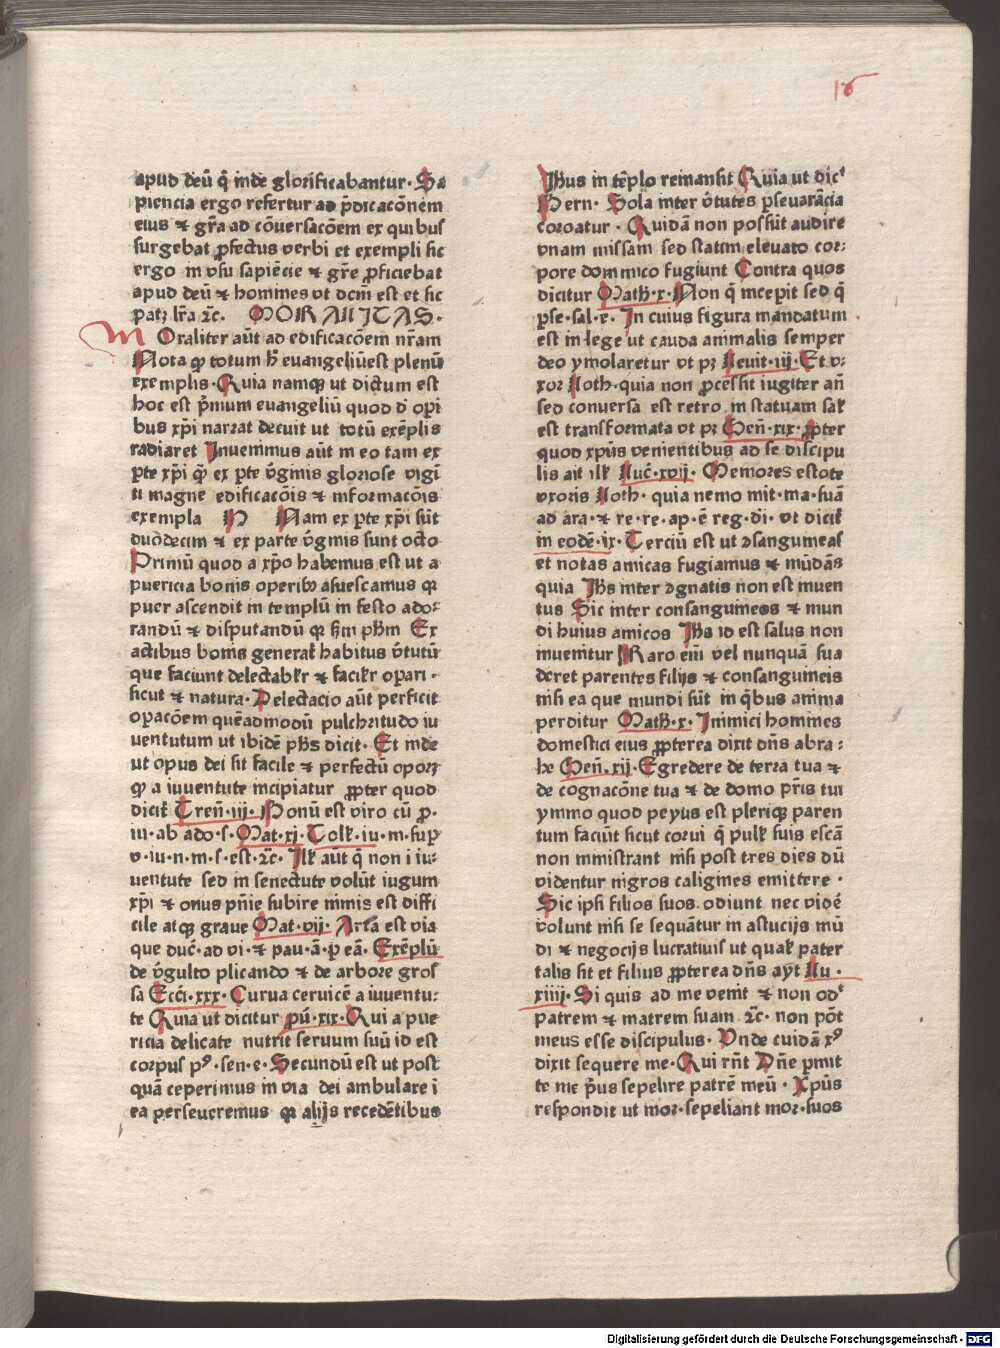 16
apud deū q̄ inde glorificabantur· Sa
piencia ergo refertur ad p̄dicacōnem
eius ⁊ gr̄a ad cōuersacōem ex quibus
surgebat ꝓfectus verbi et exempli sic
ergo in vsu sapiēcie ⁊ gr̄e ꝓficiebat
apud deū ⁊ hommes vt dcm̄ est et sic
patꝫ lr̄a ⁊c. MORALITAS·
Moraliter aūt ad edificacōem nr̄am
Nota ꝙ totum h̄ euangeliū est plenū
exemplis· Quia namqꝫ ut dictum est
hoc est p̄mum euangeliū quod d̄ oꝑi
bus xp̄i narrat decuit ut totū exēplis
radiaret Inuenimus aūt in eo tam ex
ꝑte xp̄i q̄ ex ꝑte v̄gmis gloriose vigī
ti magne edificacōis ⁊ informacōis
exempla N Nam ex ꝑte xp̄i sūt
duōdecim ⁊ ex parte v̄gmis sunt octo
Primū quod a xp̄o habemus est ut a
puericia bonis operibꝫ assuescamus qꝛ
puer ascendit in templū in festo ado⸗
randū ⁊ disputandū qꝛ s̄m ph̄m Ex
actibus bonis generat̄ habitus v̄tutū
que faciunt delectabłr ⁊ faciłr oꝑari·
sicut ⁊ natura· Delectacio aūt perficit
oꝑacōem quēadmodū pulchritudo iu
uentutum ut ibidē ph̄s dicit· Et inde
ut opus dei sit facile ⁊ perfectū oporꝫ
ꝙ a iuuentute incipiatur ꝓpter quod
dicit̄ Tren̄·iij· Bonū est viro cū p·
iu·ab ado·s· Mat·xi· Tolł·iu·m·suꝑ
v·iu·n·m·s·est·⁊c· Ilł aūt q̄ non i iu⸗
uentute sed in senectute volūt iugum
xp̄i ⁊ onus pn̄ie subire nimis est diffi
cile atqꝫ graue Mat·vij· Arta est via
que duc̄·ad vi·⁊ pau·ā·ꝑ eā· Exēplū
de v̄gulto plicando ⁊ de arbore gros
sa Ecci·xxx· Curua ceruicē a iuuentu⸗
te Quia ut dicitur ꝓū·xix· Qui a pue
ricia delicate nutrit seruum suū id est
corpus pꝰ·sen·e· Secundū est ut post
quā ceperimus in via dei ambulare i
ea perseueremus qꝛ alijs recedētibus
Ihus in tēplo remansit Quia ut dic̄
Bern· Sola inter v̄tutes ꝑseuarācia
coroatur· Quidā non possūt audire
vnam missam sed statim eleuato cor⸗
pore dominico fugiunt Contra quos
dicitur Math̄·x· Non q̄ incepit sed q̄
ꝑse·sal·e· In cuius figura mandatum
est in lege ut cauda animalis semper
deo ymolaretur vt pꝫ Leuit·iij· Et v⸗
xor Loth·quia non ꝓcessit iugiter an̄
sed conuersa est retro in statuam sał
est transformata vt pꝫ Gen̄·xix·ꝓpter
quod xpūs venientibus ad se discipu
lis ait ilł Luc̄·xvij· Memores estote
vxoris Loth· quia nemo mit·ma·suā
ad ara·⁊ re·re·ap·ē reg·di· vt dicit̄
in eodē·ix· Terciū est ut ꝯsanguineas
et notas amicas fugiamus ⁊ mūdās
quia Ih̄s inter ꝯgnatis non est inuen
tus Sic inter consanguineos ⁊ mun
di huius amicos Ih̄s id est salus non
inuenitur Raro eim̄ vel nunquā sua
deret parentes filijs ⁊ consanguineis
nisi ea que mundi sūt in qbus anima
perditur Math̄·x· Inimici hommes
domestici eius ꝓpterea dixit dn̄s abra⸗
he Gen̄·xij· Egredere de terra tua ⁊
de cognacōne tua ⁊ de domo pr̄is tui
ymmo quod peyus est pleriqꝫ paren
tum faciūt sicut corui q̄ pulł suis escā
non ministrant nisi post tres dies dū
videntur nigros caligines emittere·
Sic ipsi filios suos odiunt nec videē
volunt nisi se sequātur in astucijs mū
di ⁊ negocijs lucratiuis ut qual̄ pater
talis sit et filius ꝓpterea dn̄s ayt Lu·
xiiij· Si quis ad me venit ⁊ non od̄
patrem ⁊ matrem suam ⁊c· non pōt
meus esse discipulus· Vnde cuidā xꝰ
dixit sequere me· Qui rn̄t Dn̄e ꝑmit
te me p̄us sepelire patrē meū· Xpūs
respondit ut mor·sepeliant mor·suos
Digitalisierung gefördert durch die Deutsche Forschungsgemeinschaft - DFG